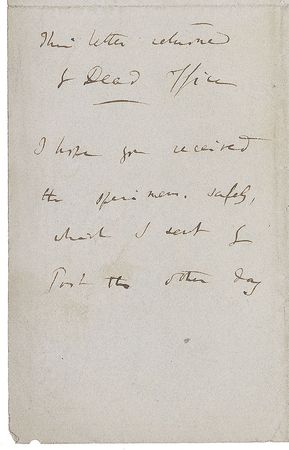 This letter returned
by Dead Office
I hope you received
the specimens safely,
which I sent by
Post the other day